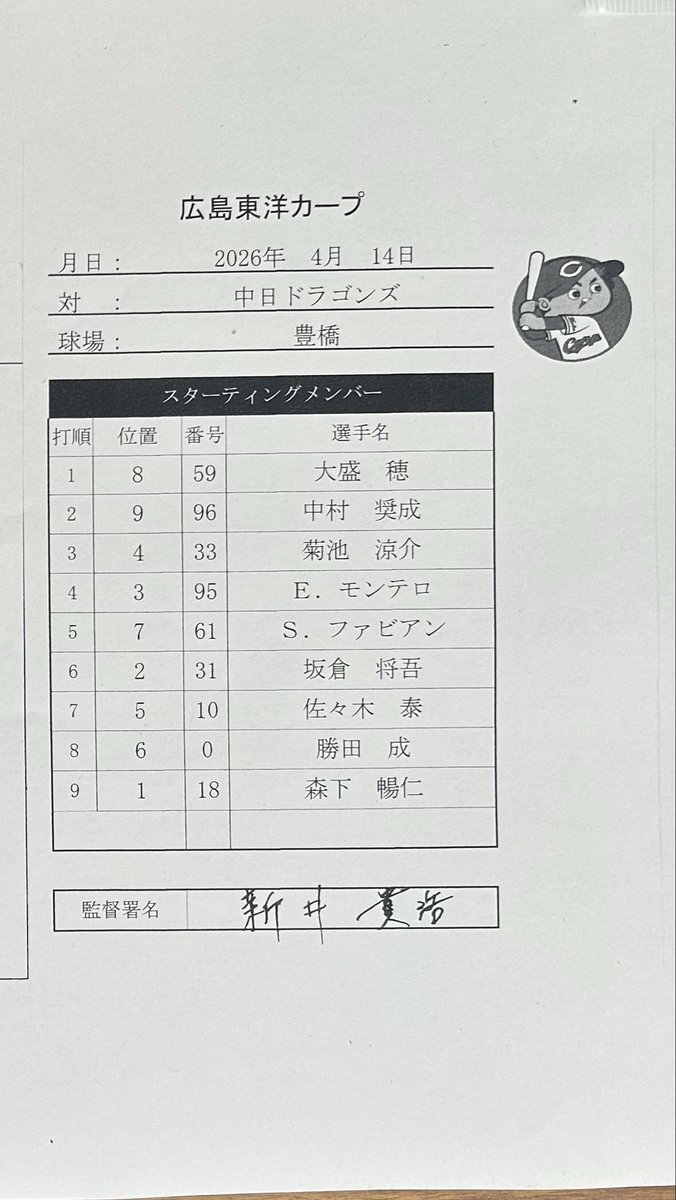 広島東洋カープ
月日： 2026年 4月 14日
対 ： 中日ドラゴンズ
球場： 豊橋
スターティングメンバー
打順 位置 番号 選手名
1 8 59 大盛 穂
2 9 96 中村 奨成
3 4 33 菊池 涼介
4 3 95 E．モンテロ
5 7 61 S．ファビアン
6 2 31 坂倉 将吾
7 5 10 佐々木 泰
8 6 0 勝田 成
9 1 18 森下 暢仁
監督署名 新井 貴浩
C
Carp